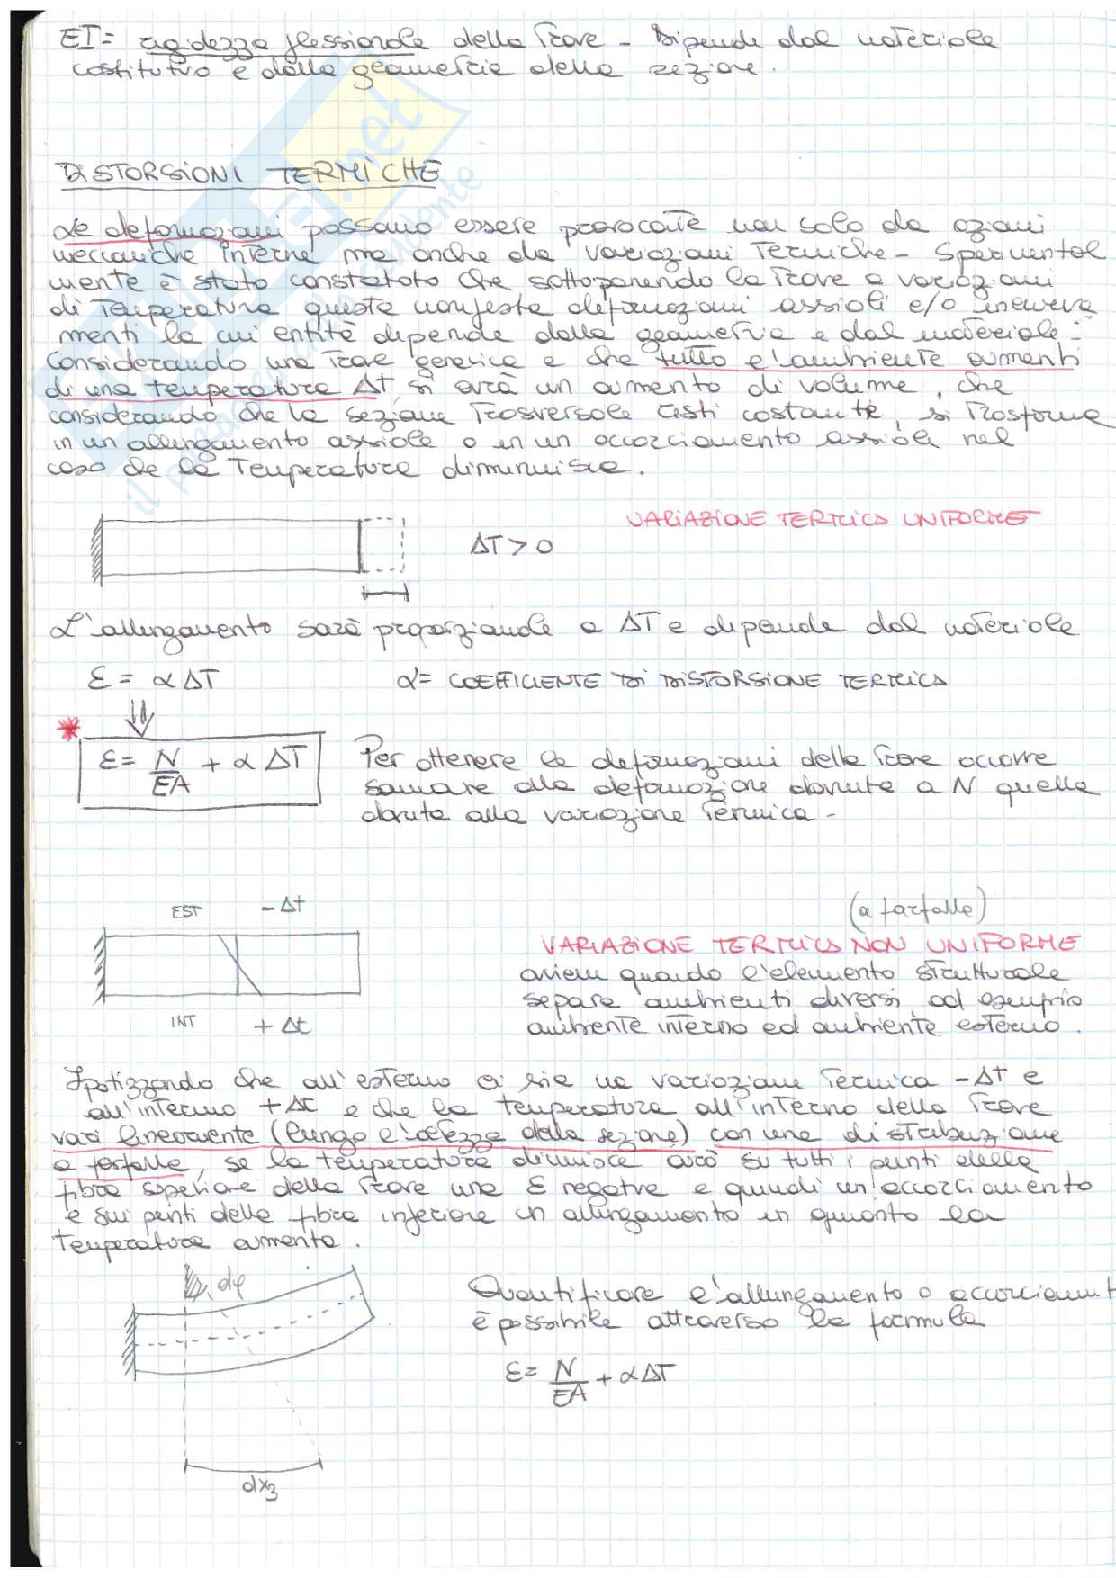 EI = rigidezza flessionale della trave - Dipende dal materiale
costitutivo e dalla geometria della sezione.
DISTORSIONI TERMICHE
Le deformazioni possono essere provocate non solo da azioni
meccaniche interne ma anche da variazioni termiche - Sperimental
mente è stato constatato che sottoponendo la trave a variazioni
di temperatura questa manifesta deformazioni assiali e/o incurva
menti la cui entità dipende dalla geometria e dal materiale -
Considerando una trave generica e che tutto l'ambiente aumenti
di una temperatura Δt si avrà un aumento di volume, che
considerando che la sezione trasversale resti costante, si trasforma
in un allungamento assiale o in un accorciamento assiale nel
caso che la temperatura diminuisca.
VARIAZIONE TERMICA UNIFORME
ΔT > 0
L'allungamento sarà proporzionale a ΔT e dipende dal materiale
ε = α ΔT α = COEFFICIENTE DI DISTORSIONE TERMICA
* ε = N/EA + α ΔT Per ottenere le deformazioni della trave occorre
sommare alla deformazione dovuta a N quella
dovuta alla variazione termica -
EST - Δt
(a farfalla)
VARIAZIONE TERMICA NON UNIFORME
avviene quando l'elemento strutturale
separa ambienti diversi, ad esempio
INT + Δt
ambiente interno ed ambiente esterno.
Ipotizzando che all'esterno ci sia una variazione termica -Δt e
all'interno +Δt e che la temperatura all'interno della trave
vari linearmente (lungo l'altezza della sezione) con una distribuzione
a farfalla, se la temperatura diminuisce avrò su tutti i punti della
fibra superiore della trave una ε negativa e quindi un'accorciamento
e sui punti della fibra inferiore un allungamento in quanto la
temperatura aumenta.
dφ
Quantificare l'allungamento o accorciament
è possibile attraverso la formula
ε = N/EA + α ΔT
dx₃